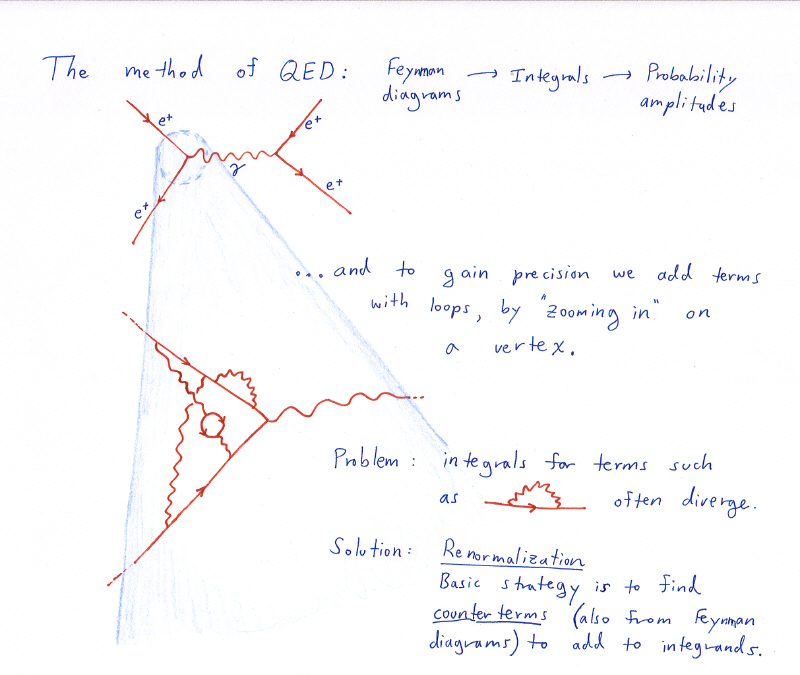 The method of QED: Feynman diagrams → Integrals → Probability amplitudes
e+
e+
γ
e+
e+
...and to gain precision we add terms
with loops, by "zooming in" on
a vertex.
Problem: integrals for terms such
as often diverge.
Solution: Renormalization
Basic strategy is to find
counterterms (also from Feynman
diagrams) to add to integrands.